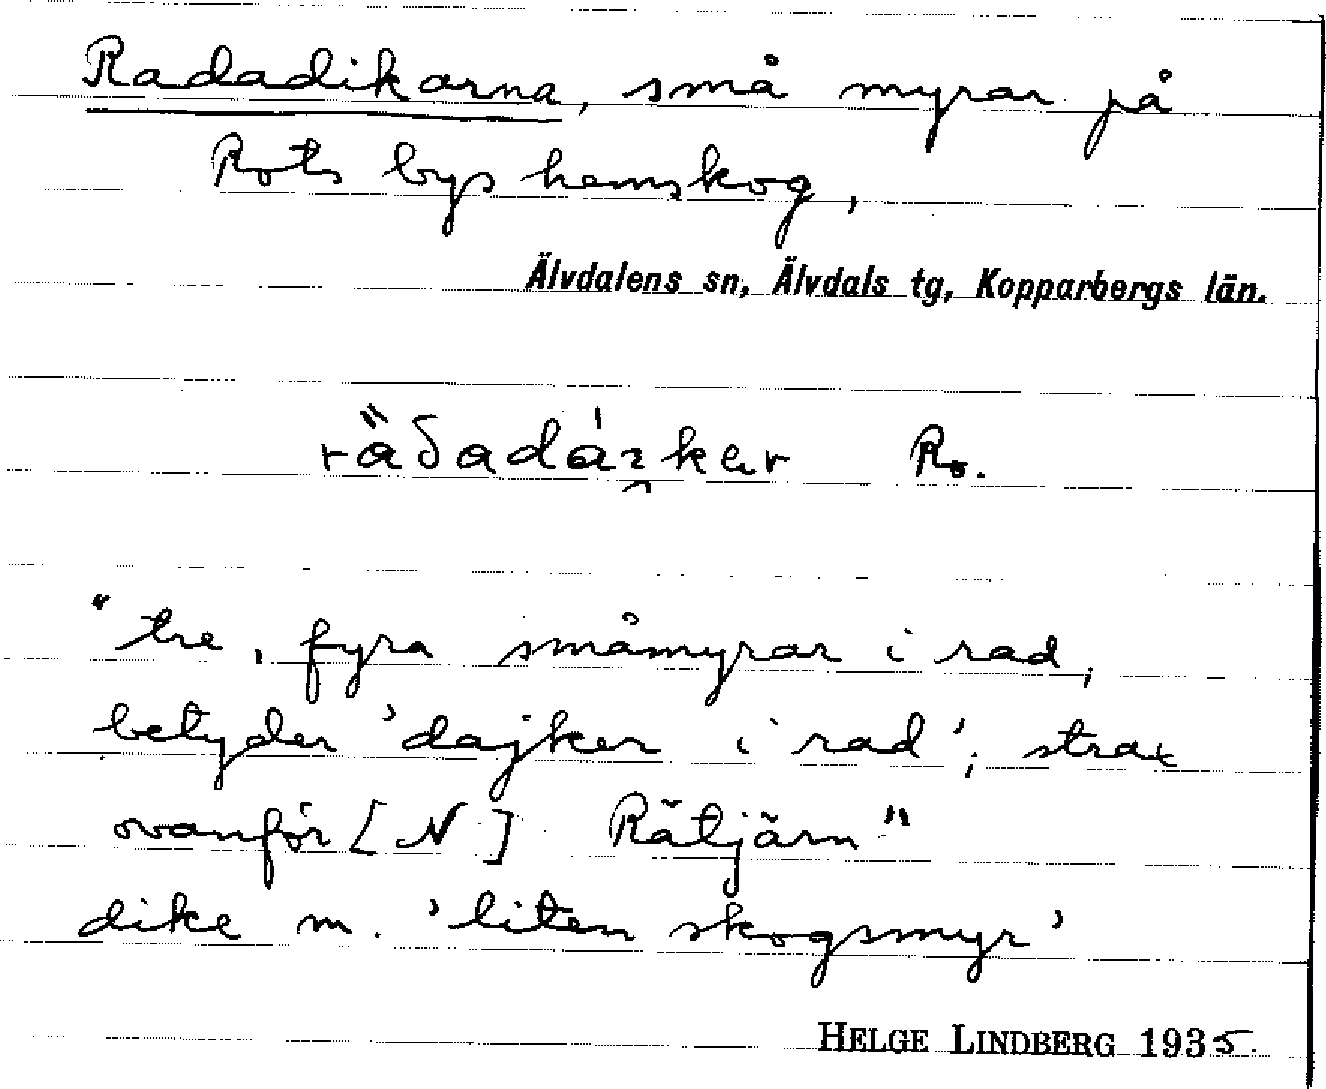 Radadikarna, små myrar på
Rots bys hemskog,
Älvdalens sn, Älvdals tg, Kopparbergs län.
Ro.
"tre, fyra småmyrar i rad,
betyder 'dajker i rad'; strax
ovanför [N] Rätjärn"
dike m. 'liten skogsmyr'
HELGE LINDBERG 1935.